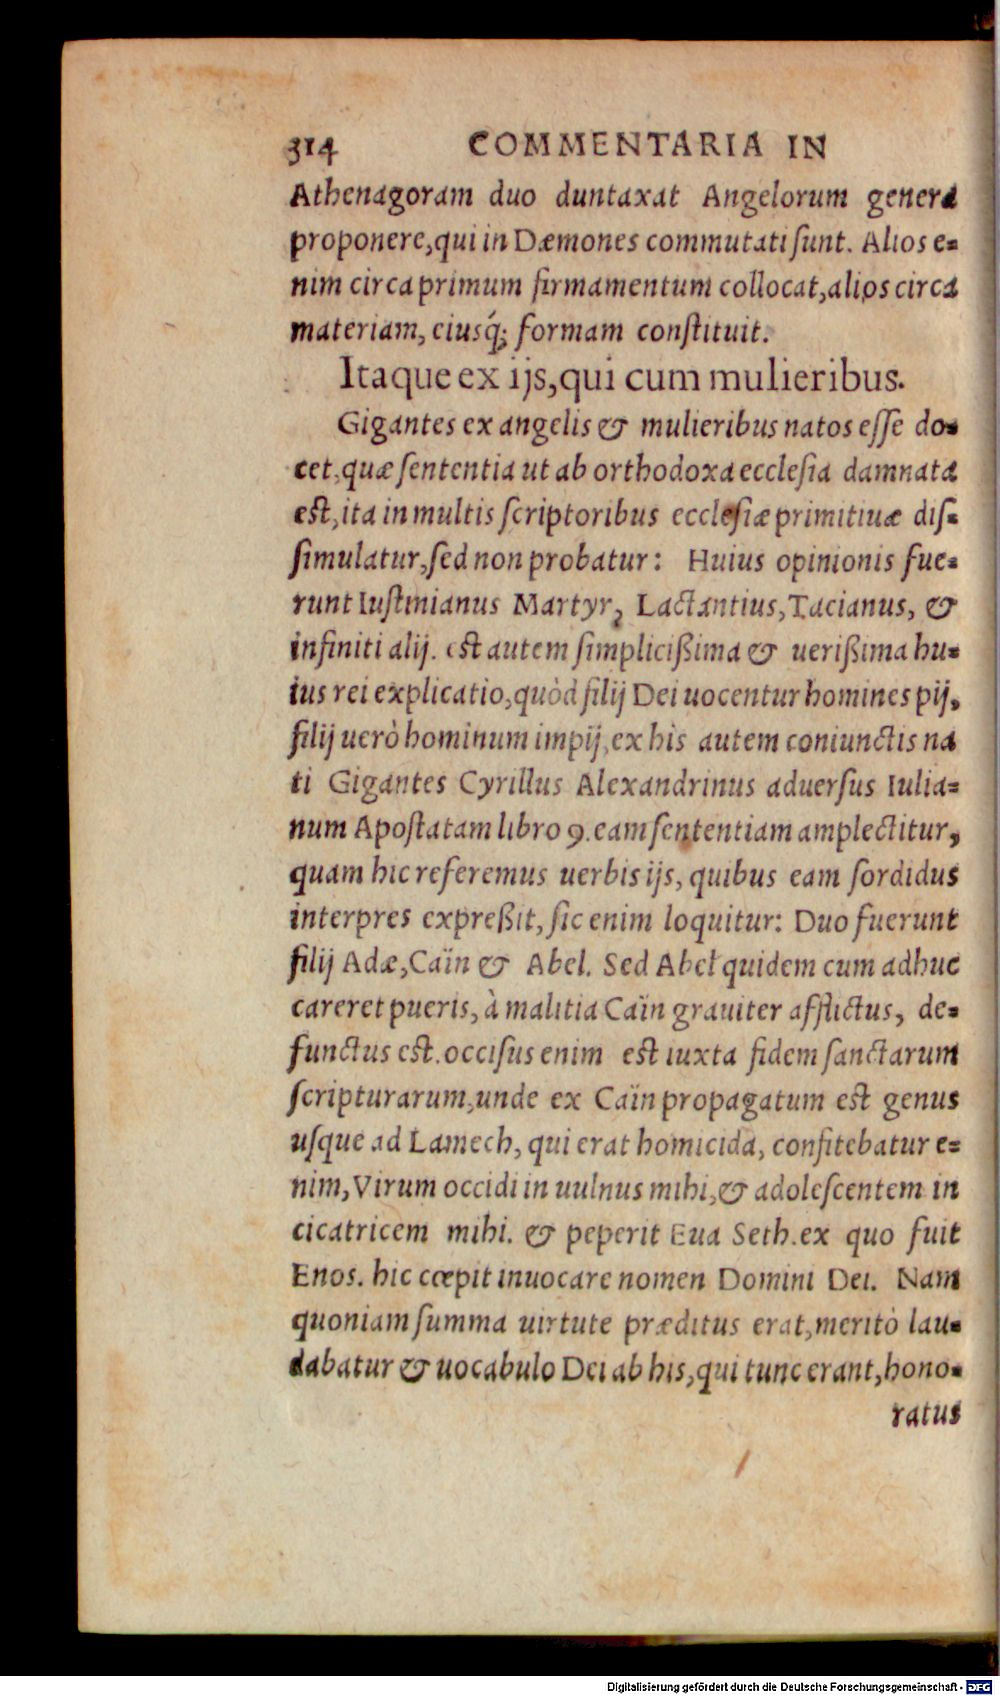 314 COMMENTARIA IN
Athenagoram duo duntaxat Angelorum genera
proponere, qui in Dæmones commutati sunt. Alios e=
nim circa primum firmamentum collocat, alios circa
materiam, eiusq́; formam constituit.
Itaque ex ijs, qui cum mulieribus.
Gigantes ex angelis & mulieribus natos esse do=
cet, quæ sententia ut ab orthodoxa ecclesia damnata
est, ita in multis scriptoribus ecclesiæ primitiuæ dis=
simulatur, sed non probatur: Huius opinionis fue=
runt Iustinianus Martyr, Lactantius, Tacianus, &
infiniti alij. est autem simplicißima & uerißima hu=
ius rei explicatio, quòd filij Dei uocentur homines pij,
filij uerò hominum impij, ex his autem coniunctis na
ti Gigantes Cyrillus Alexandrinus aduersus Iulia=
num Apostatam libro 9. eam sententiam amplectitur,
quam hic referemus uerbis ijs, quibus eam sordidus
interpres expreßit, sic enim loquitur: Duo fuerunt
filij Adæ, Caïn & Abel. Sed Abel quidem cum adhuc
careret pueris, à malitia Caïn grauiter afflictus, de=
functus est. occisus enim est iuxta fidem sanctarum
scripturarum, unde ex Caïn propagatum est genus
usque ad Lamech, qui erat homicida, confitebatur e=
nim, Virum occidi in uulnus mihi, & adolescentem in
cicatricem mihi. & peperit Eua Seth. ex quo fuit
Enos. hic cœpit inuocare nomen Domini Dei. Nam
quoniam summa uirtute præditus erat, meritò lau=
dabatur & uocabulo Dei ab his, qui tunc erant, hono=
ratus
Digitalisierung gefördert durch die Deutsche Forschungsgemeinschaft - DFG